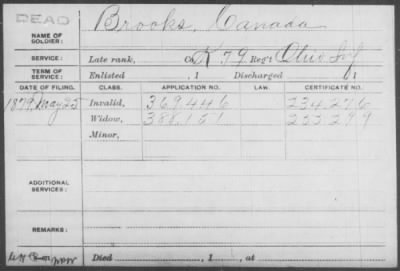 DEAD
Brooks, Canada
NAME OF SOLDIER:
SERVICE: Late rank, Co. K 79 Reg't Ohio Inf
TERM OF SERVICE: Enlisted , 1 Discharged , 1
DATE OF FILING. CLASS. APPLICATION NO. LAW. CERTIFICATE NO.
1879, May 25 Invalid, 369446 234.276
Widow, 388.151 255299
Minor,
ADDITIONAL SERVICES:
REMARKS:
Died , 1 , at